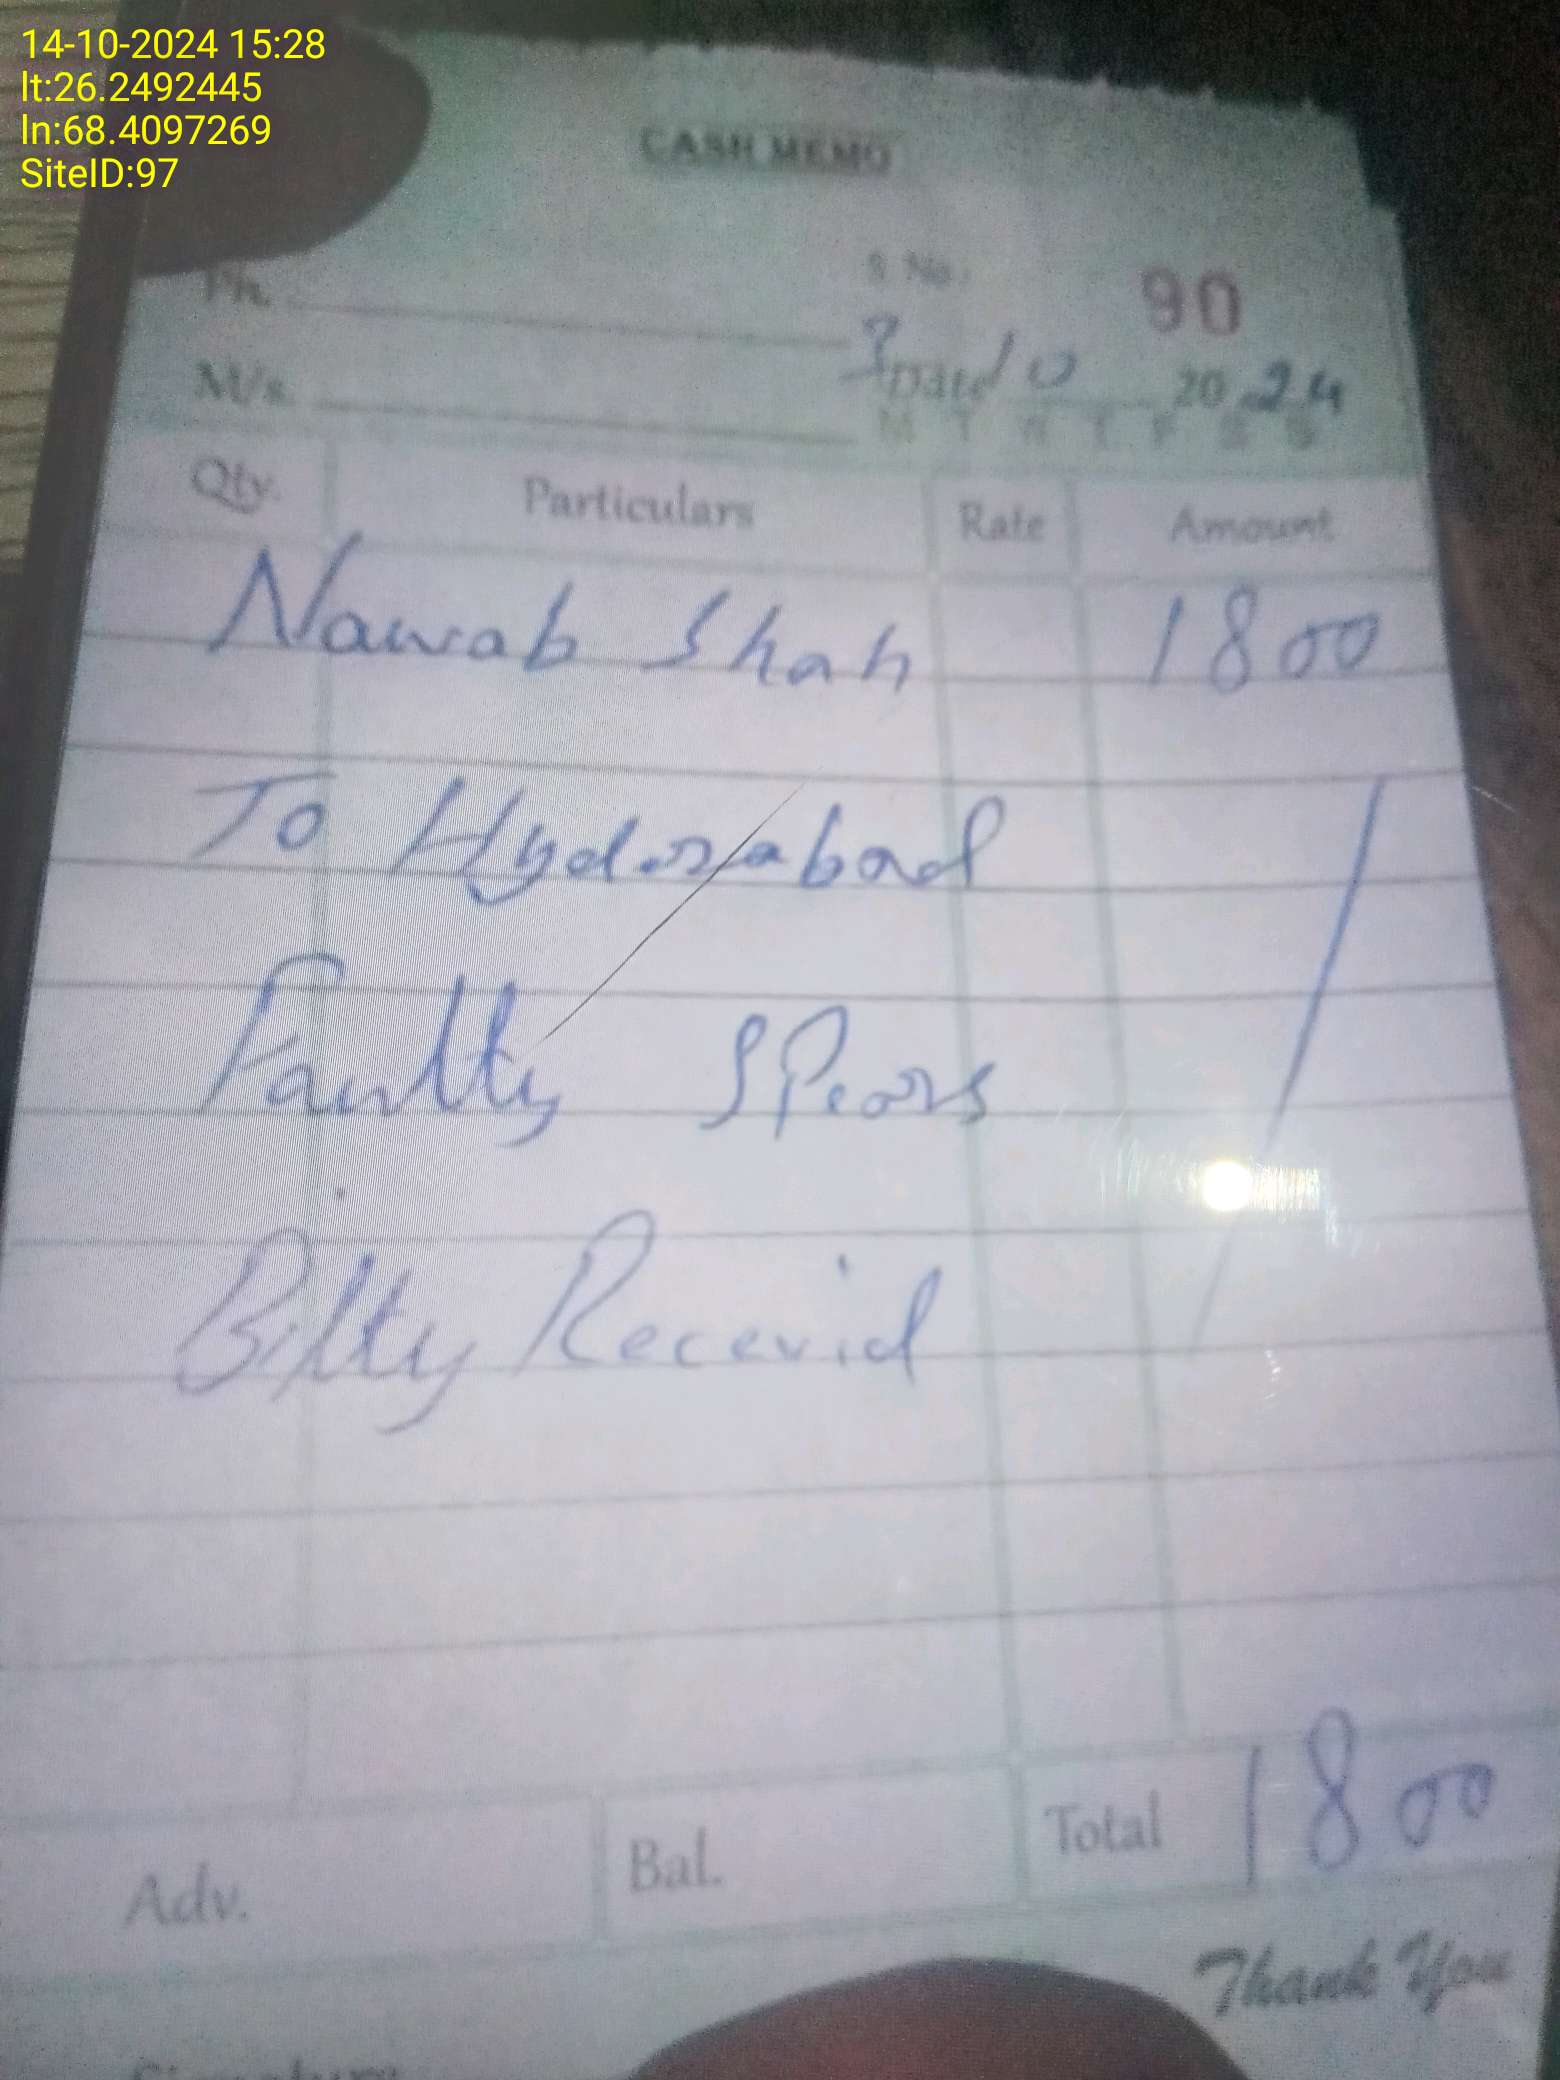 14-10-2024 15:28
lt:26.2492445
ln:68.4097269
SiteID:97
CASH MEMO
S. No. 90
Ph.
3 Date 10 2024
M/s.
M T W T F S S
Qty. Particulars Rate Amount
Nawab Shah 1800
To Hyderabad
Faulty Spears
Bilty Recevid
Adv. Bal. Total 1800
Thank You
Signature